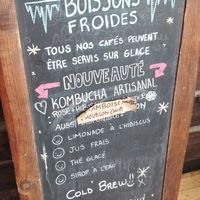 BOISSONS
FROIDES
TOUS NOS CAFÉS PEUVENT
ÊTRE SERVIS SUR GLACE
NOUVEAUTÉ
KOMBUCHA ARTISANAL
ROSE
AUSSI
LIMONADE À L'HIBISCUS
JUS FRAIS
THÉ GLACÉ
SIROP À L'EAU
COLD BREW!!